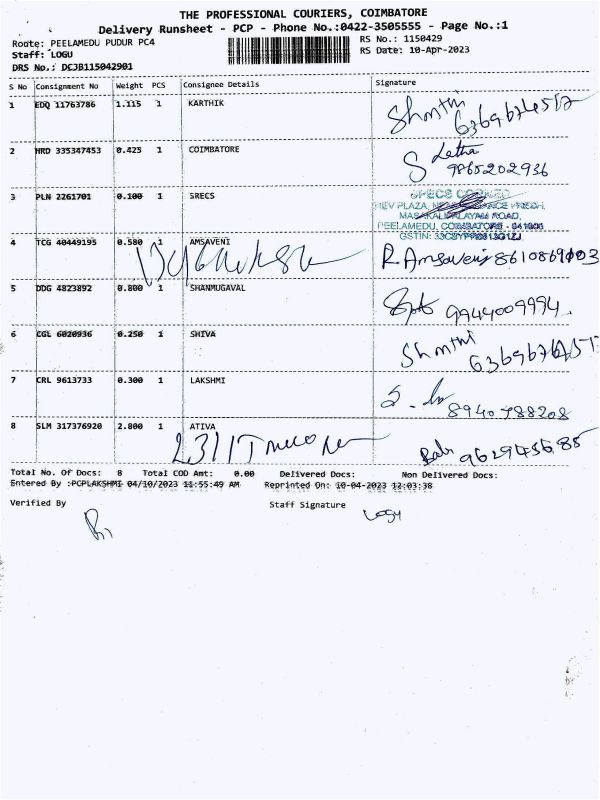 THE PROFESSIONAL COURIERS, COIMBATORE
Delivery Runsheet - PCP - Phone No.:0422-3505555 - Page No.:1
Route: PEELAMEDU PUDUR PC4
RS No.: 1150429
Staff: LOGU
RS Date: 10-Apr-2023
DRS No.: DCJB115042901
S No Consignment No Weight PCS Consignee Details Signature
1 EDQ 11763786 1.115 1 KARTHIK
Shanthi
2 HRD 335347453 0.425 1 COIMBATORE
S Letha
9865202936
3 PLN 2261701 0.100 1 SRECS
MASAKALIPALAYAM ROAD,
PEELAMEDU, COIMBATORE - 641004
4 TCG 40449195 0.580 1 AMSAVENI
R Amsaveni 8610869003
5 DDG 4823892 0.800 1 SHANMUGAVAL
9944009994
6 CGL 6020936 0.250 1 SHIVA
Shanthi
7 CRL 9613733 0.300 1 LAKSHMI
8940788208
8 SLM 317376920 2.800 1 ATIVA
Total No. Of Docs: 8 Total COD Amt: 0.00 Delivered Docs: Non Delivered Docs:
Entered By :PCPLAKSHMI 04/10/2023 11:55:49 AM Reprinted On: 10-04-2023 12:03:38
Verified By Staff Signature
Logu